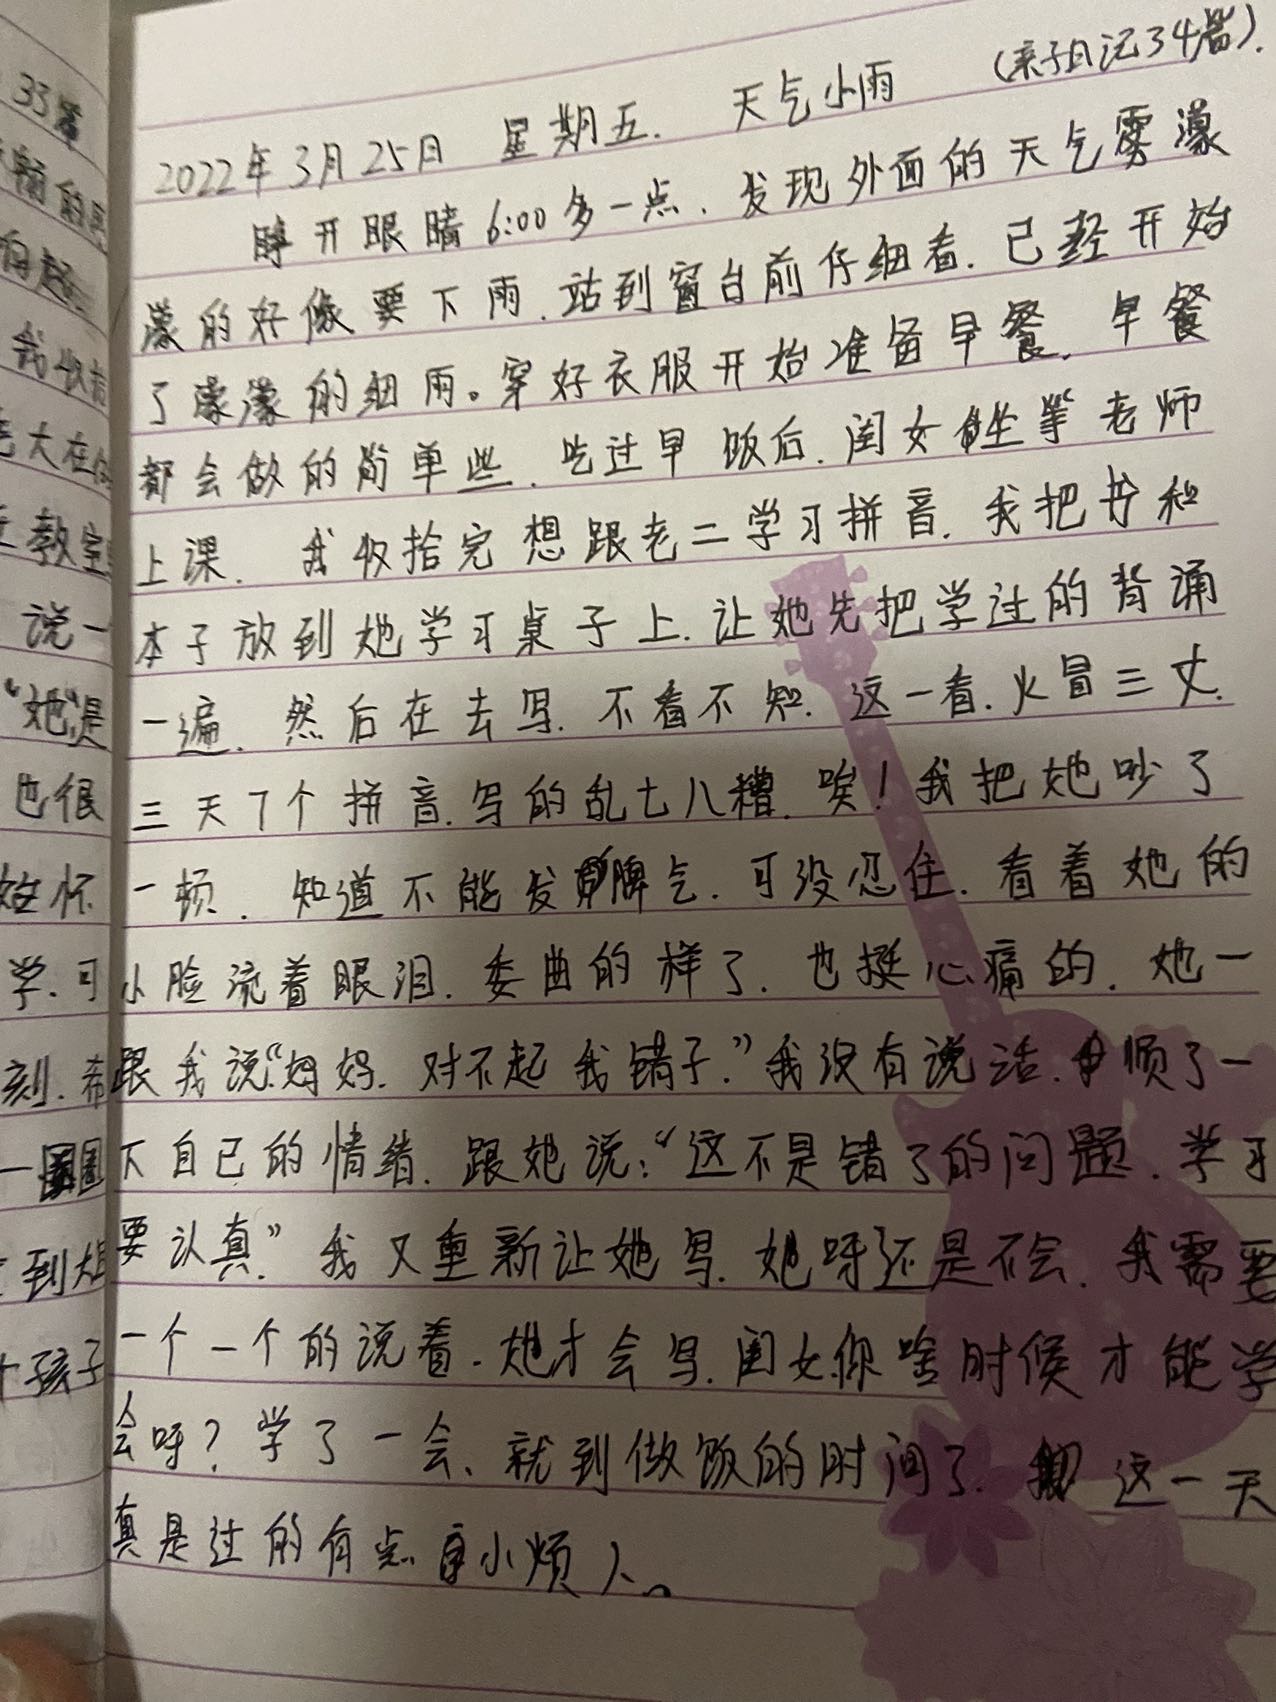 (亲子日记34篇).
2022年3月25日 星期五. 天气小雨
睁开眼睛6:00多一点. 发现外面的天气雾濛
濛的好像要下雨. 站到窗台前仔细看. 已经开始
了濛濛的细雨。穿好衣服开始准备早餐. 早餐
都会做的简单些. 吃过早饭后. 闺女坐等老师
上课. 我收拾完想跟老二学习拼音. 我把书和
本子放到她学习桌子上. 让她先把学过的背诵
一遍. 然后在去写. 不看不知. 这一看. 火冒三丈.
三天7个拼音. 写的乱七八糟. 唉! 我把她吵了
一顿. 知道不能发脾气. 可没忍住. 看着她的
小脸流着眼泪. 委曲的样了. 也挺心痛的. 她一
跟我说“妈妈. 对不起我错子.”我没有说话. 顺了一
下自己的情绪. 跟她说:“这不是错了的问题. 学习
要认真.” 我又重新让她写. 她呀还是不会. 我需要
一个一个的说着. 她才会写. 闺女你啥时候才能学
会呀? 学了一会、就到做饭的时间了. 这一天
真是过的有点小烦人。
33篇
我收拾
老大在
教室
说一
“她”是
也很
怀
学习
刻. 希
一圈圈
到她
个孩子